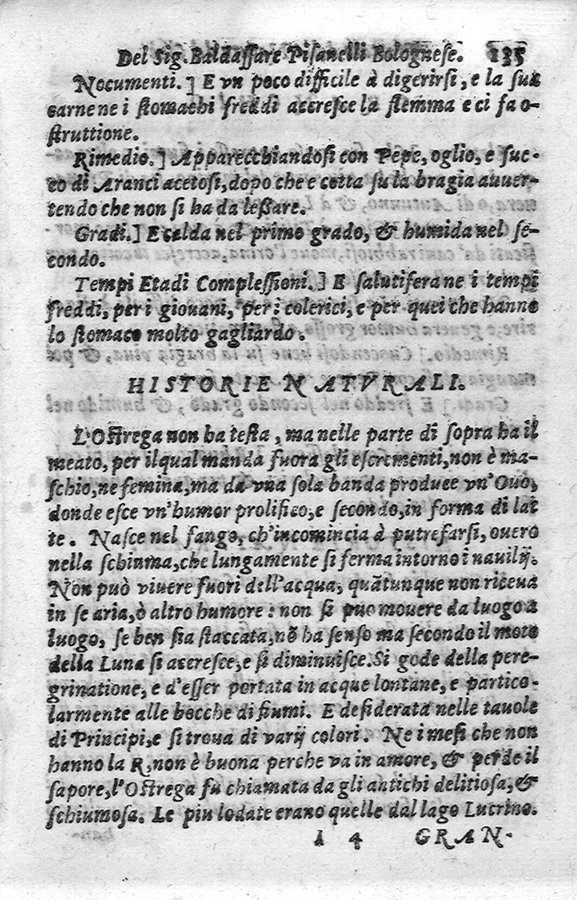 Del Sig. Baldassare Pisanelli Bolognese. 135
Nocumenti.] E vn poco difficile à digerirsi, e la sua
carne ne i stomachi freddi accresce la flemma e ci fa o-
struttione.
Rimedio.] Apparecchiandosi con Pepe, oglio, e suc-
co di Aranci acetosi, dopo che e cotta su la bragia auuer-
tendo che non si ha da lessare.
Gradi.] E calda nel primo grado, & humida nel se-
condo.
Tempi Etadi Complessioni.] E salutifera ne i tempi
freddi, per i giouani, per i colerici, e per quei che hanno
lo stomaco molto gagliardo.
HISTORIE NATVRALI.
L'Ostrega non ha testa, ma nelle parte di sopra ha il
meato, per il qual manda fuora gli escrementi, non è ma-
schio, ne femina, ma da vna sola banda produce vn'Ouo,
donde esce vn'humor prolifico, e secondo, in forma di lat
te. Nasce nel fango, ch'incomincia à putrefarsi, ouero
nella schiuma, che lungamente si ferma intorno i nauilij.
Non può viuere fuori dell'acqua, quãtunque non riceua
in se aria, ò altro humore: non si puo mouere da luogo a
luogo, se ben sia staccata, nõ ha senso ma secondo il moto
della Luna si accresce, e si diminuisce. Si gode della pere-
grinatione, e d'esser portata in acque lontane, e partico-
larmente alle bocche di fiumi. E desiderata nelle tauole
di Principi, e si troua di varij colori. Ne i mesi che non
hanno la R, non è buona perche va in amore, & perde il
sapore, l'Ostrega fu chiamata da gli antichi delitiosa, &
schiumosa. Le piu lodate erano quelle dal lago Lucrino.
I 4 GRAN-